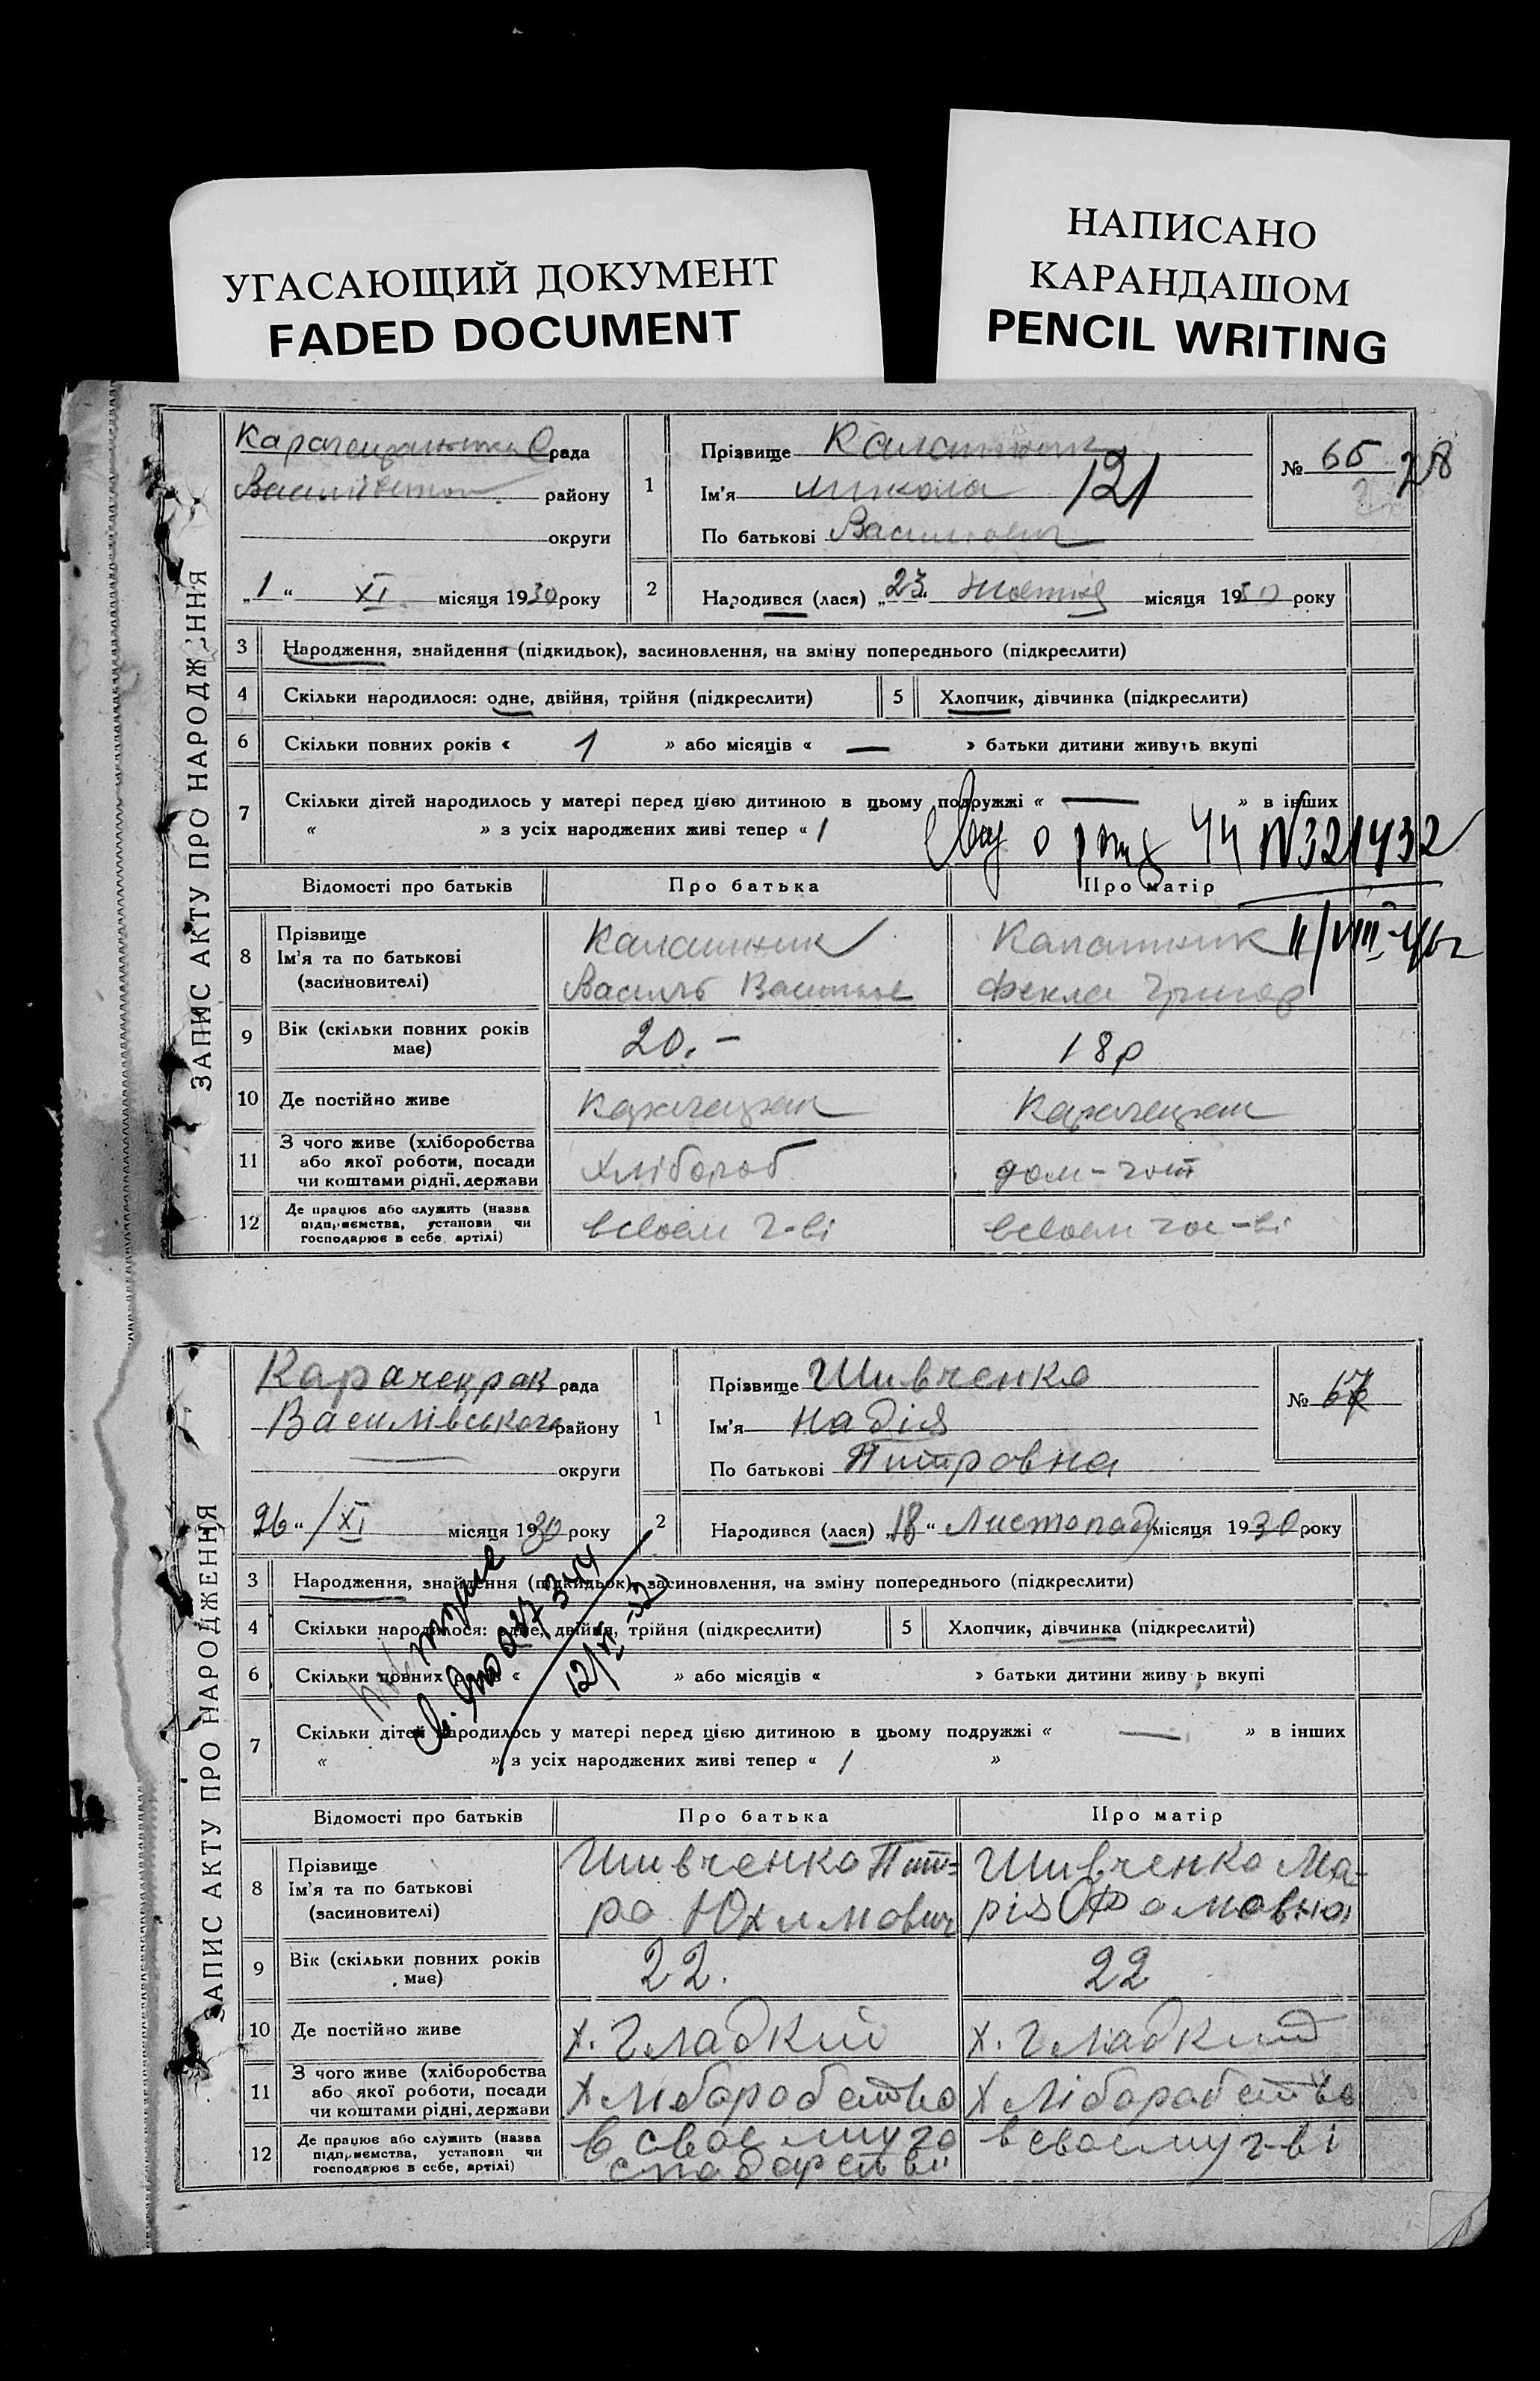 УГАСАЮЩИЙ ДОКУМЕНТ
FADED DOCUMENT
НАПИСАНО
КАРАНДАШОМ
PENCIL WRITING
ЗАПИС АКТУ ПРО НАРОДЖЕННЯ
рада
району
округи
„1“ XI місяця 1930 року
1 Прізвище Калашник
Ім'я Микола 121
По батькові
№ 65
2 Народився (лася) „23“ Жовтня місяця 1930 року
3 Народження, знайдення (підкидьок), засиновлення, на зміну попереднього (підкреслити)
4 Скільки народилося: одне, двійня, трійня (підкреслити) 5 Хлопчик, дівчинка (підкреслити)
6 Скільки повних років « 1 » або місяців « — » батьки дитини живуть вкупі
7 Скільки дітей народилось у матері перед цією дитиною в цьому подружжі « — » в інших
« » з усіх народжених живі тепер « 1
N321432
Відомості про батьків Про батька Про матір
8 Прізвище Ім'я та по батькові (засиновителі) Калашник Калашник
Василь Фекла
9 Вік (скільки повних років має) 20.- 18р
10 Де постійно живе
11 З чого живе (хліборобства або якої роботи, посади чи коштами рідні, держави Хлібороб дом-гост
12 Де працює або служить (назва підприємства, установи чи господарює в себе, артілі) всвоем г-ві всвоем гос-ві
ЗАПИС АКТУ ПРО НАРОДЖЕННЯ
Карачекрак рада
Василівського району
округи
„26“ /XI місяця 1930 року
1 Прізвище Шивченко
Ім'я Надія
По батькові Питровна
№
2 Народився (лася) „18“ Листопаду місяця 1930 року
3 Народження, знайдення (підкидьок), засиновлення, на зміну попереднього (підкреслити)
4 Скільки народилося: одне, двійня, трійня (підкреслити) 5 Хлопчик, дівчинка (підкреслити)
6 Скільки повних років « » або місяців « » батьки дитини живуть вкупі
7 Скільки дітей народилось у матері перед цією дитиною в цьому подружжі « — » в інших
« » з усіх народжених живі тепер « 1 »
Відомості про батьків Про батька Про матір
8 Прізвище Ім'я та по батькові (засиновителі) Шивченко Пит= Шивченко Ма-
ро Юхимович рія Фомовна
9 Вік (скільки повних років має) 22. 22
10 Де постійно живе х. Гладкий х. Гладкий
11 З чого живе (хліборобства або якої роботи, посади чи коштами рідні, держави Хліборобство Хліборобство
12 Де працює або служить (назва підприємства, установи чи господарює в себе, артілі) в своемуго в своему г-ві
сподарстві